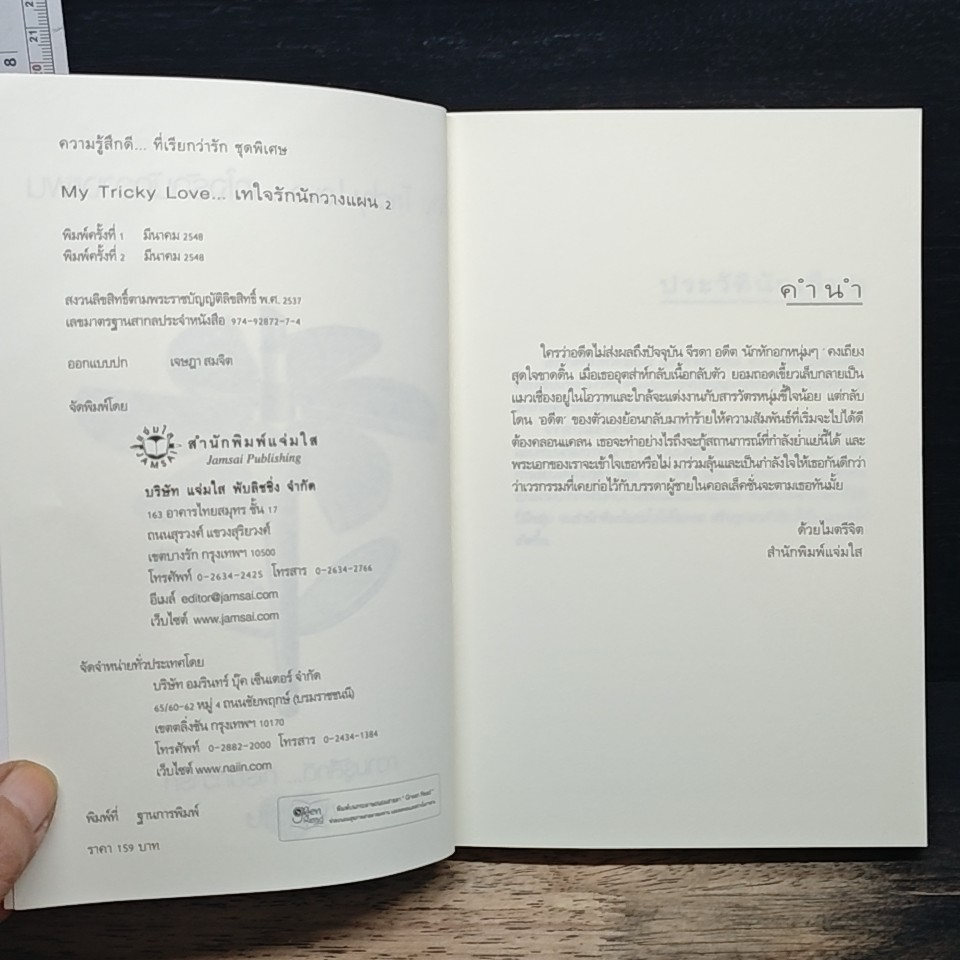 8
21
20
ความรู้สึกดี... ที่เรียกว่ารัก ชุดพิเศษ
My Tricky Love... เทใจรักนักวางแผน 2
พิมพ์ครั้งที่ 1 มีนาคม 2548
พิมพ์ครั้งที่ 2 มีนาคม 2548
สงวนลิขสิทธิ์ตามพระราชบัญญัติลิขสิทธิ์ พ.ศ. 2537
เลขมาตรฐานสากลประจำหนังสือ 974-92872-7-4
ออกแบบปก เจษฎา สมจิต
จัดพิมพ์โดย
สำนักพิมพ์แจ่มใส
Jamsai Publishing
บริษัท แจ่มใส พับลิชชิ่ง จำกัด
163 อาคารไทยสมุทร ชั้น 17
ถนนสุรวงศ์ แขวงสุริยวงศ์
เขตบางรัก กรุงเทพฯ 10500
โทรศัพท์ 0-2634-2425 โทรสาร 0-2634-2766
อีเมล์ editor@jamsai.com
เว็บไซต์ www.jamsai.com
จัดจำหน่ายทั่วประเทศโดย
บริษัท อมรินทร์ บุ๊ค เซ็นเตอร์ จำกัด
65/60-62 หมู่ 4 ถนนชัยพฤกษ์ (บรมราชชนนี)
เขตตลิ่งชัน กรุงเทพฯ 10170
โทรศัพท์ 0-2882-2000 โทรสาร 0-2434-1384
เว็บไซต์ www.naiin.com
พิมพ์ที่ ฐานการพิมพ์
ราคา 159 บาท
Green Read
คำนำ
ใครว่าอดีตไม่ส่งผลถึงปัจจุบัน จีรดา อดีต 'นักหักอกหนุ่มๆ' คงเถียง
สุดใจขาดดิ้น เมื่อเธออุตส่าห์กลับเนื้อกลับตัว ยอมถอดเขี้ยวเล็บกลายเป็น
แมวเชื่องอยู่ในโอวาทและใกล้จะแต่งงานกับสารวัตรหนุ่มขี้ใจน้อย แต่กลับ
โดน 'อดีต' ของตัวเองย้อนกลับมาทำร้ายให้ความสัมพันธ์ที่เริ่มจะไปได้ดี
ต้องคลอนแคลน เธอจะทำอย่างไรถึงจะกู้สถานการณ์ที่กำลังย่ำแย่นี้ได้ และ
พระเอกของเราจะเข้าใจเธอหรือไม่ มาร่วมลุ้นและเป็นกำลังใจให้เธอกันดีกว่า
ว่าเวรกรรมที่เคยก่อไว้กับบรรดาผู้ชายในคอลเล็คชั่นจะตามเธอทันมั้ย
ด้วยไมตรีจิต
สำนักพิมพ์แจ่มใส